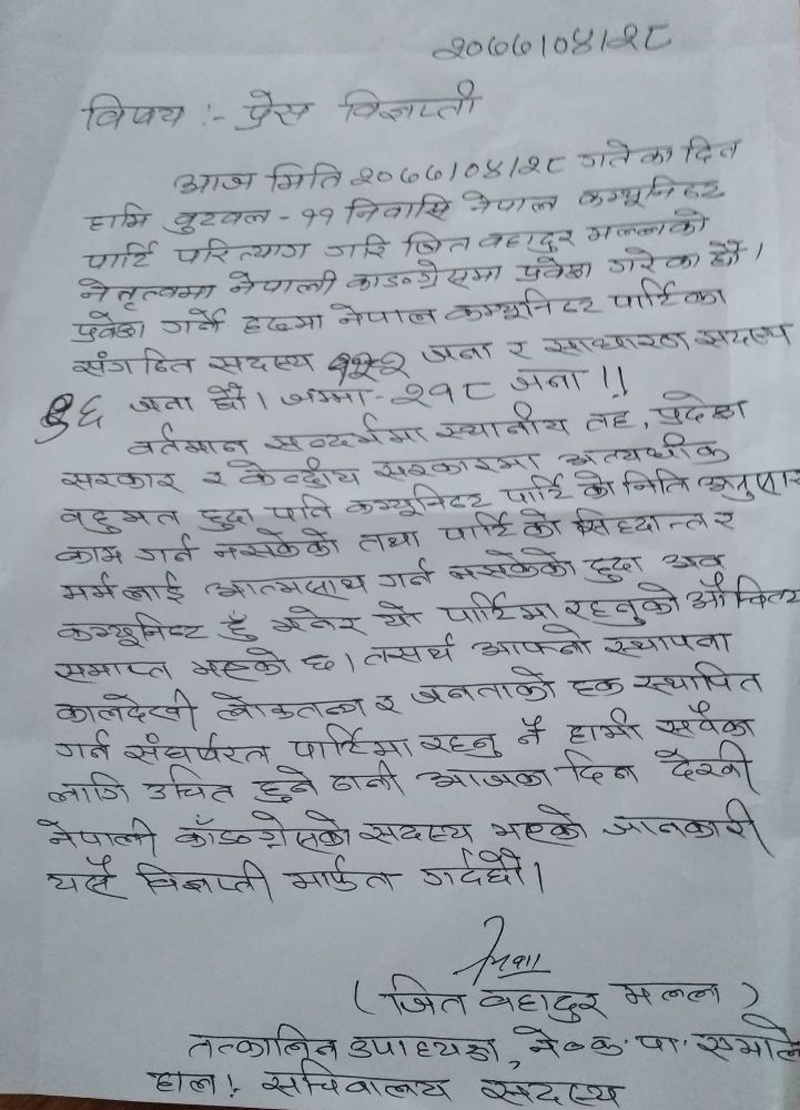 २०७७।०४।२८
विषय :- प्रेस विज्ञप्ती
आज मिति २०७७।०४।२८ गतेका दिन
हामि वुटवल - ११ निवासि नेपाल कम्यूनिष्ट
पार्टि परित्याग गरि जित वहादुर मल्लको
नेतृत्वमा नेपाली काङग्रेसमा प्रवेश गरेका छौं।
प्रवेश गर्ने क्रममा नेपाल कम्यूनिष्ट पार्टिका
संगठित सदस्य जना र साधारण सदस्य
जना छौं। जम्मा - २१८ जना !!
वर्तमान सन्दर्भमा स्थानीय तह, प्रदेश
सरकार र केन्द्रीय सरकारमा अत्यधीक
वहुमत हुदा पनि कम्यूनिष्ट पार्टि को निति अनुसार
काम गर्न नसकेको तथा पार्टि को सिध्दान्त र
मर्म लाई आत्मसाथ गर्न नसकेको हुदा अव
कम्यूनिष्ट हुँ भनेर यो पार्टिमा रहनुको औचित्य
समाप्त भएको छ। तसर्थ आफ्नो स्थापना
कालदेखी लोकतन्त्र र जनताको हक स्थापित
गर्न संघर्षरत पार्टिमा रहनु नै हामी सवैका
लागि उचित हुने ठानी आजका दिन देखी
नेपाली काँङग्रेसको सदस्य भएको जानकारी
यसै विज्ञप्ती मार्फत गर्दछौं।
( जित वहादुर मल्ल )
तत्कालिन उपाध्यक्ष, ने॰क॰पा॰ एमाले
हाल : सचिवालय सदस्य